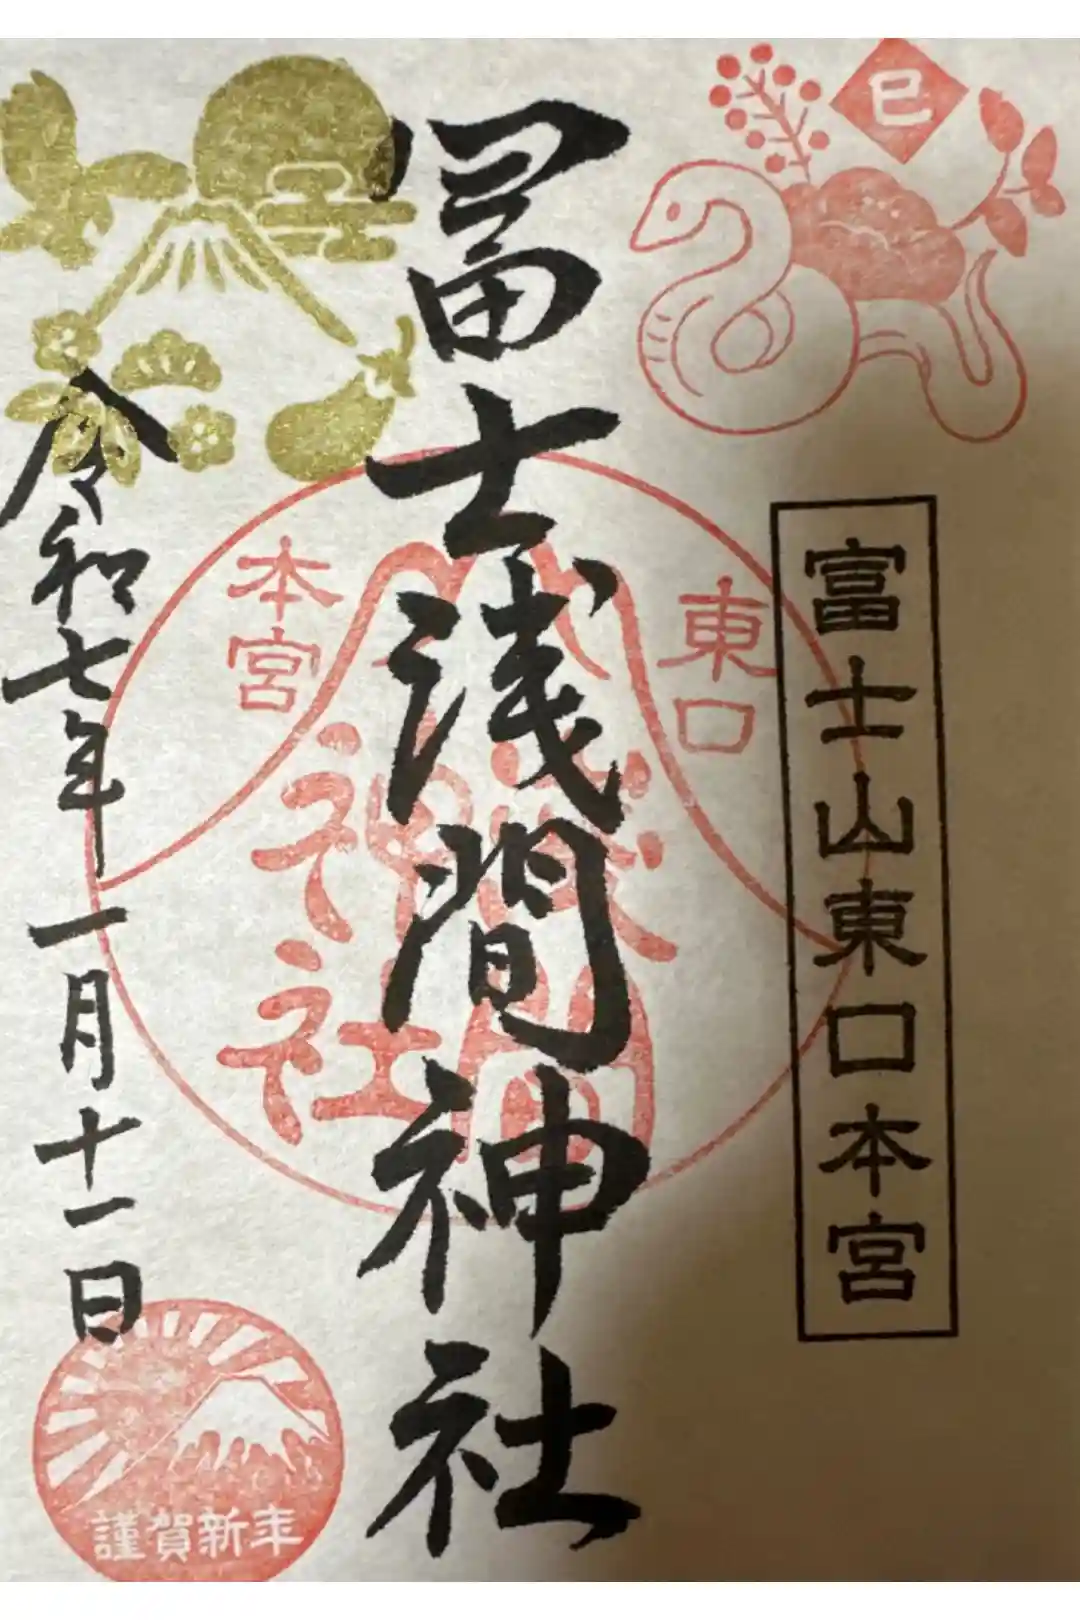 巳
富士山東口本宮
東口
冨士浅間神社
浅間
神社
本宮
令和七年一月十一日
謹賀新年